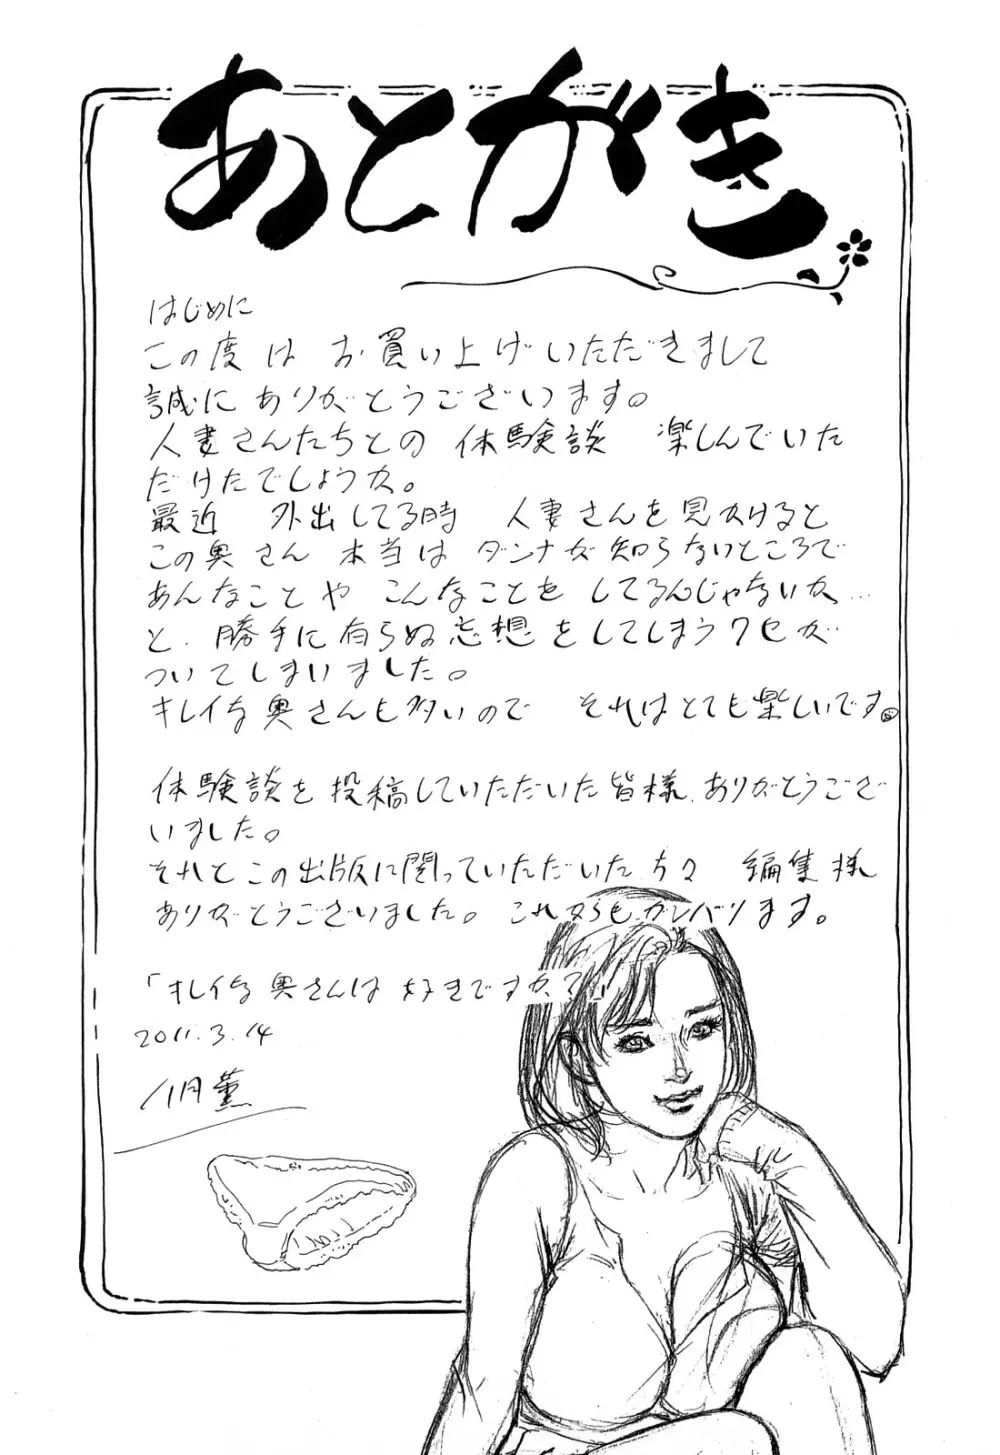 あとがき
はじめに
この度は お買い上げいただきまして
誠に ありがとうございます。
人妻さんたちとの 体験談 楽しんでいた
だけたでしょうか。
最近 外出してる時 人妻さんを見かけると
この奥さん 本当は ダンナが知らないところで
あんなことや こんなことを してるんじゃないか…
と、勝手に有らぬ忘想をしてしまうクセが
ついてしまいました。
キレイな奥さんも多いので それはとても楽しいです。
体験談を投稿していただいた皆様、ありがとうござ
いました。
それとこの出版に関っていただいた方々 編集様
ありがとうございました。これからもガンバります。
「キレイな奥さんは 好きですか?」
2011.3.14
八月薫